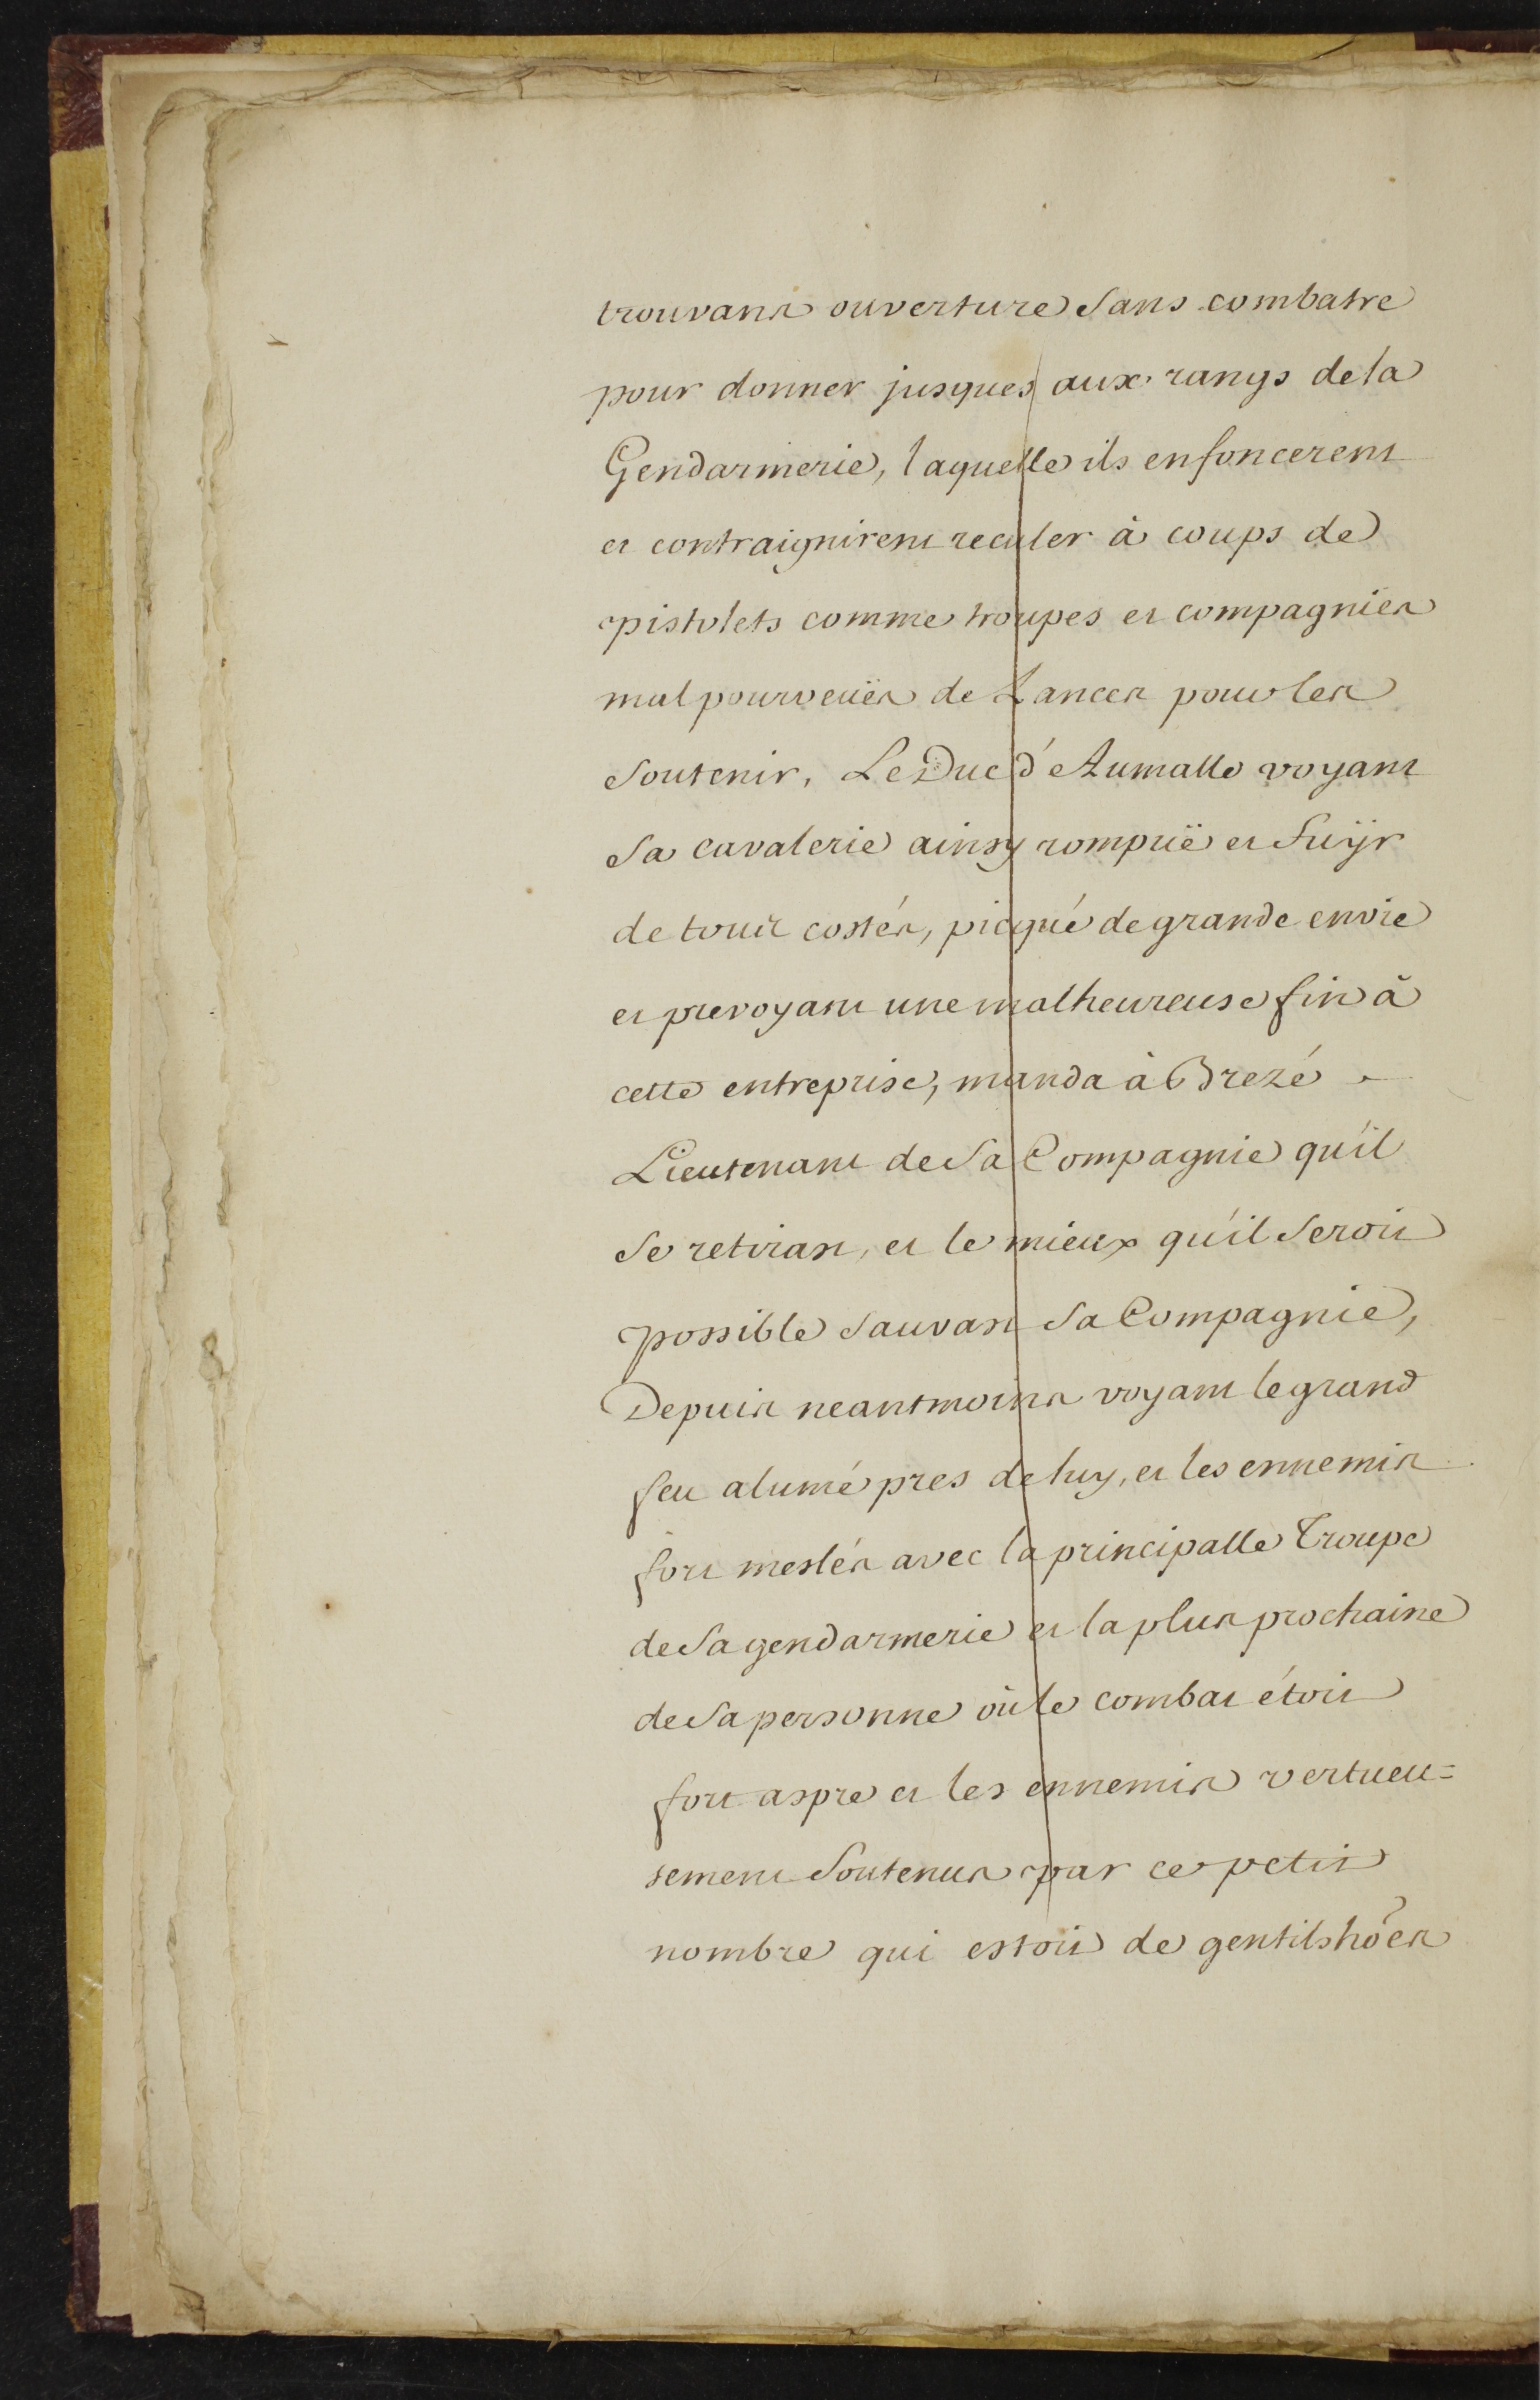 trouvant ouverture sans combatre
pour donner jusques aux rangs de la
Gendarmerie, laquelle ils enfoncerent
et contraignirent reculer à coups de
pistolets comme troupes et compagnies
mal pourveües de Lances pour les
soutenir, Le Duc d'Aumalle voyant
sa cavalerie ainsy rompuë et fuÿr
de tous costés, picqué de grande envie
et prevoyant une malheureuse fin à
cette entreprise, manda à Brezé
Lieutenant de sa Compagnie qu'il
se retirast, et le mieux qu'il seroit
possible sauvast sa Compagnie,
Depuis neantmoins voyant le grand
feu alumé pres de luy, et les ennemis
fort meslés avec la principalle Troupe
de sa gendarmerie et la plus prochaine
de sa personne où le combat étoit
fort aspre et les ennemis vertueu=
sement soutenus par ce petit
nombre qui estoit de gentilshões